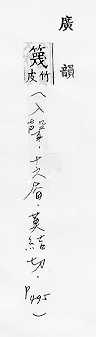 廣韻
篾竹皮
(入聲·十六屑·莫結切·P495)